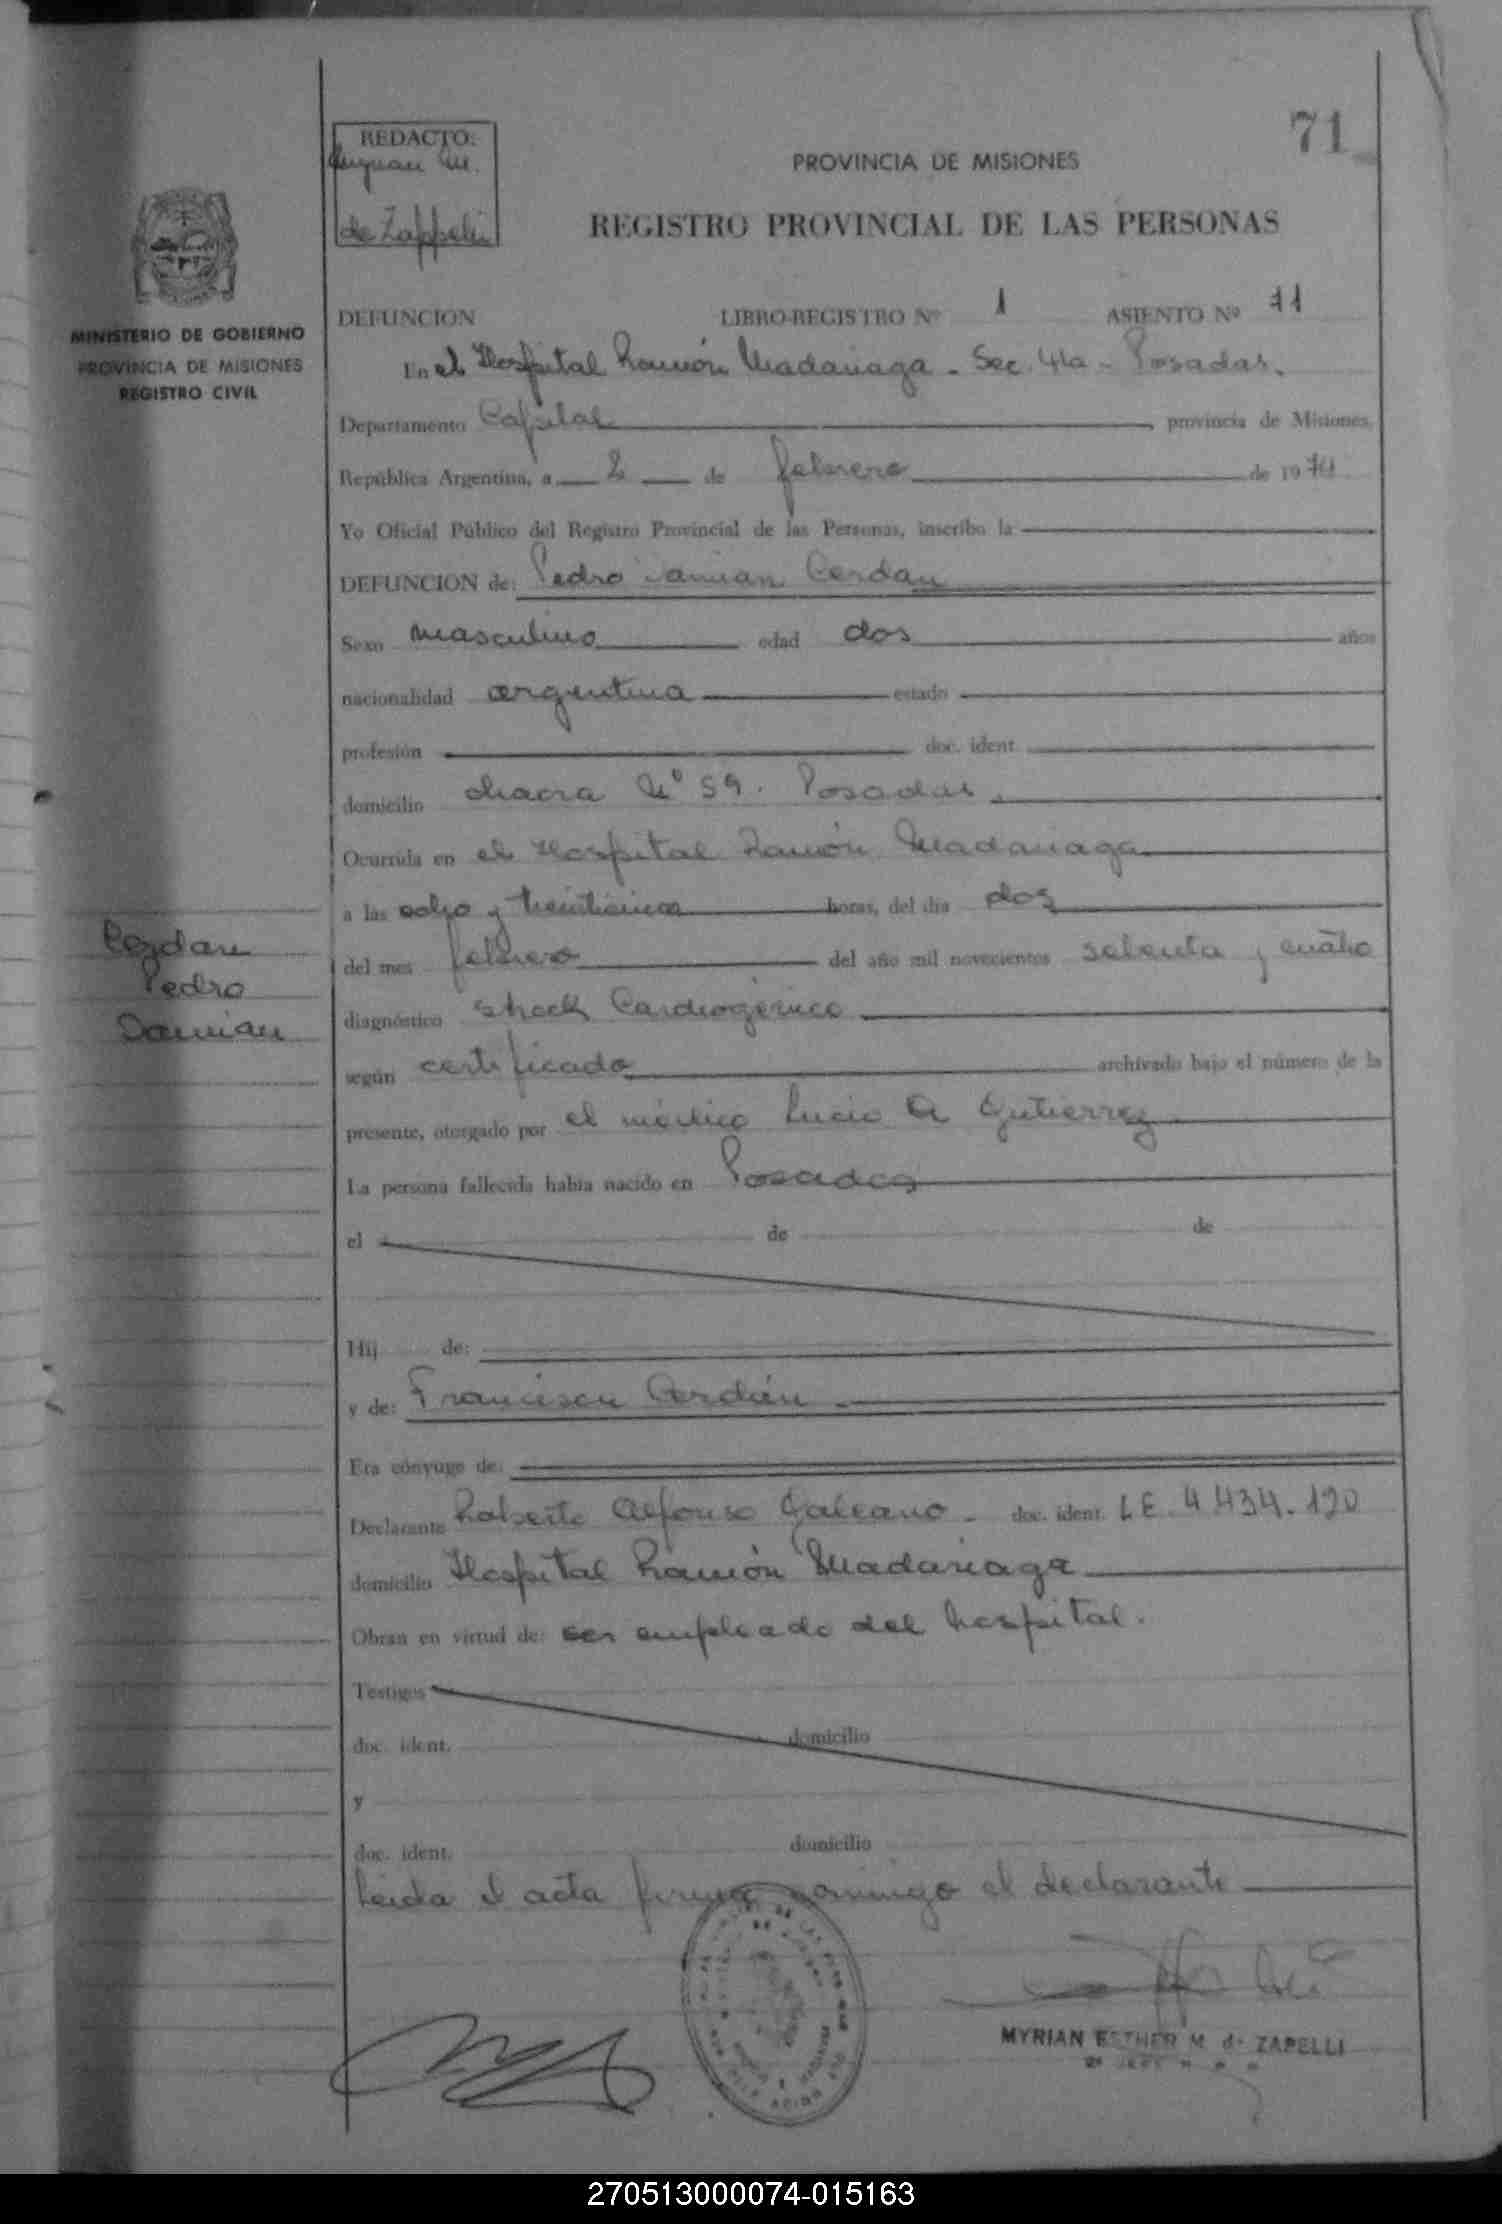 71
REDACTO:
de Zappelli
PROVINCIA DE MISIONES
REGISTRO PROVINCIAL DE LAS PERSONAS
MINISTERIO DE GOBIERNO
PROVINCIA DE MISIONES
REGISTRO CIVIL
DEFUNCION LIBRO-REGISTRO Nº 1 ASIENTO Nº 71
En el Hospital Ramón Madariaga - Sec. 4ta - Posadas.
Departamento Capital, provincia de Misiones,
República Argentina, a 2 de febrero de 1974
Yo Oficial Público del Registro Provincial de las Personas, inscribo la
DEFUNCION de: Pedro Damian Cerdan
Sexo masculino edad dos años
nacionalidad argentina estado
profesión doc. ident.
domicilio chacra Nº 59. Posadas.
Ocurrida en el Hospital Ramón Madariaga
a las ocho y treinticinco horas, del día dos
del mes febrero del año mil novecientos setenta y cuatro
diagnóstico Shock Cardiogénico
según certificado archivado bajo el número de la
presente, otorgado por el médico Lucio A Gutierrez
La persona fallecida había nacido en Posadas
el de de
Hij de:
y de: Francisca Cerdán
Era cónyuge de:
Declarante Roberto Alfonso Galeano - doc. ident. LE. 4.434.120
domicilio Hospital Ramón Madariaga
Obran en virtud de: ser empleado del hospital.
Testigos
doc. ident. domicilio
y
doc. ident. domicilio
Leida el acta firma conmigo el declarante
Cerdan
Pedro
Damian
MYRIAN ESTHER M. de ZAPELLI
270513000074-015163